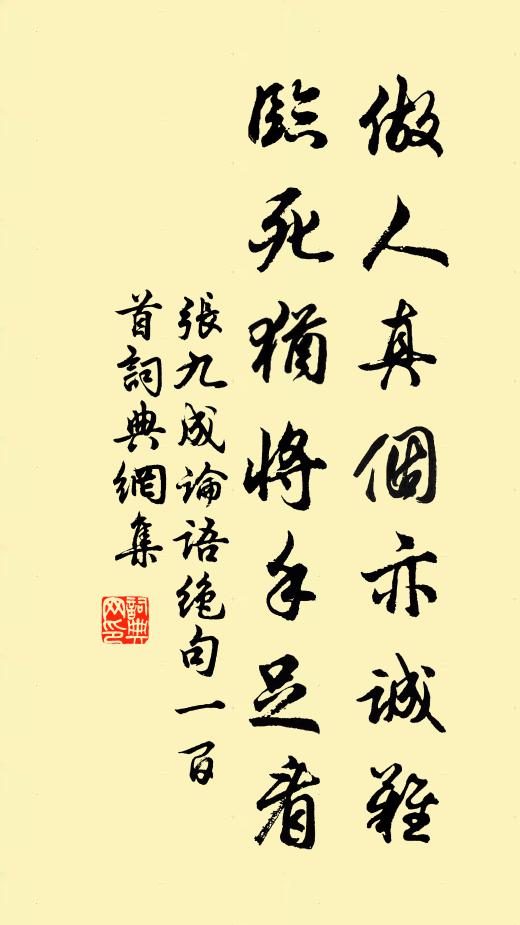 做人真個亦誠難
臨死猶將手足看
張九成論語絶句一百
首詞典網集
詞典網印